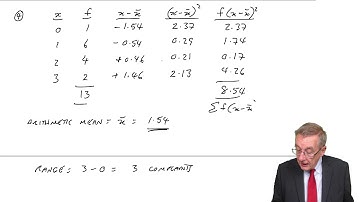 (9) x f x-x̄ (x-x̄)² f(x-x̄)²
0 1 -1.54 2.37 2.37
1 6 -0.54 0.29 1.74
2 4 +0.46 0.21 0.17
3 2 +1.46 2.13 4.26
13 8.54
Σf(x-x̄)²
ARITHMETIC MEAN = x̄ = 1.54
RANGE = 3-0 = 3 COMPLAINTS